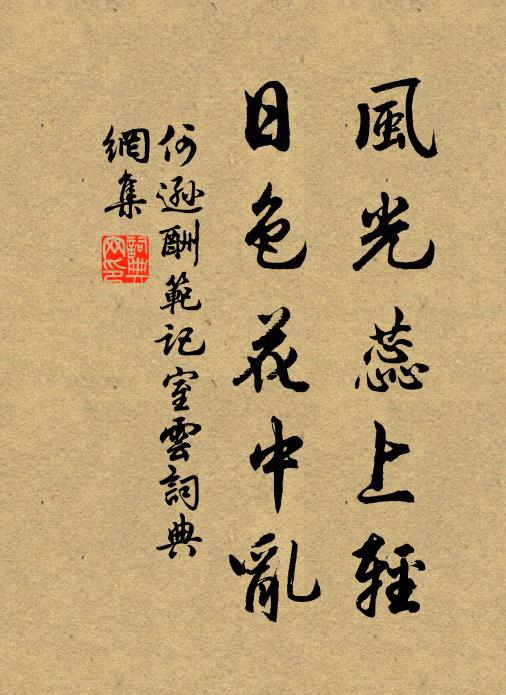 風光蕊上輕
日色花中亂
何遜酬範記室雲詞典
網集
詞典
网印